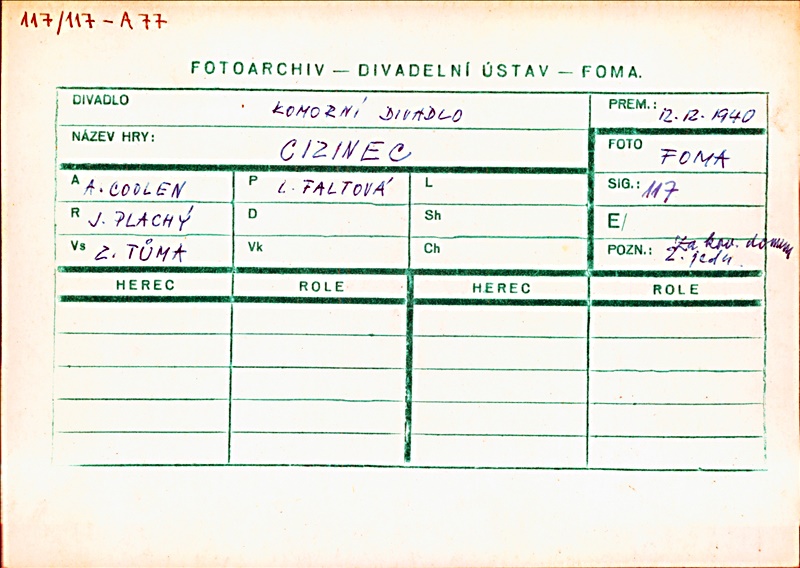 117/117 - A 77
FOTOARCHIV — DIVADELNÍ ÚSTAV — FOMA.
DIVADLO KOMORNÍ DIVADLO
PREM.: 12. 12. 1940
NÁZEV HRY: CIZINEC
FOTO FOMA
A A. COOLEN P L. FALTOVÁ L
SIG.: 117
R J. PLACHÝ D Sh
E/
Vs Z. TŮMA Vk Ch
POZN.: Za kov. domem
2. jedn.
HEREC ROLE HEREC ROLE